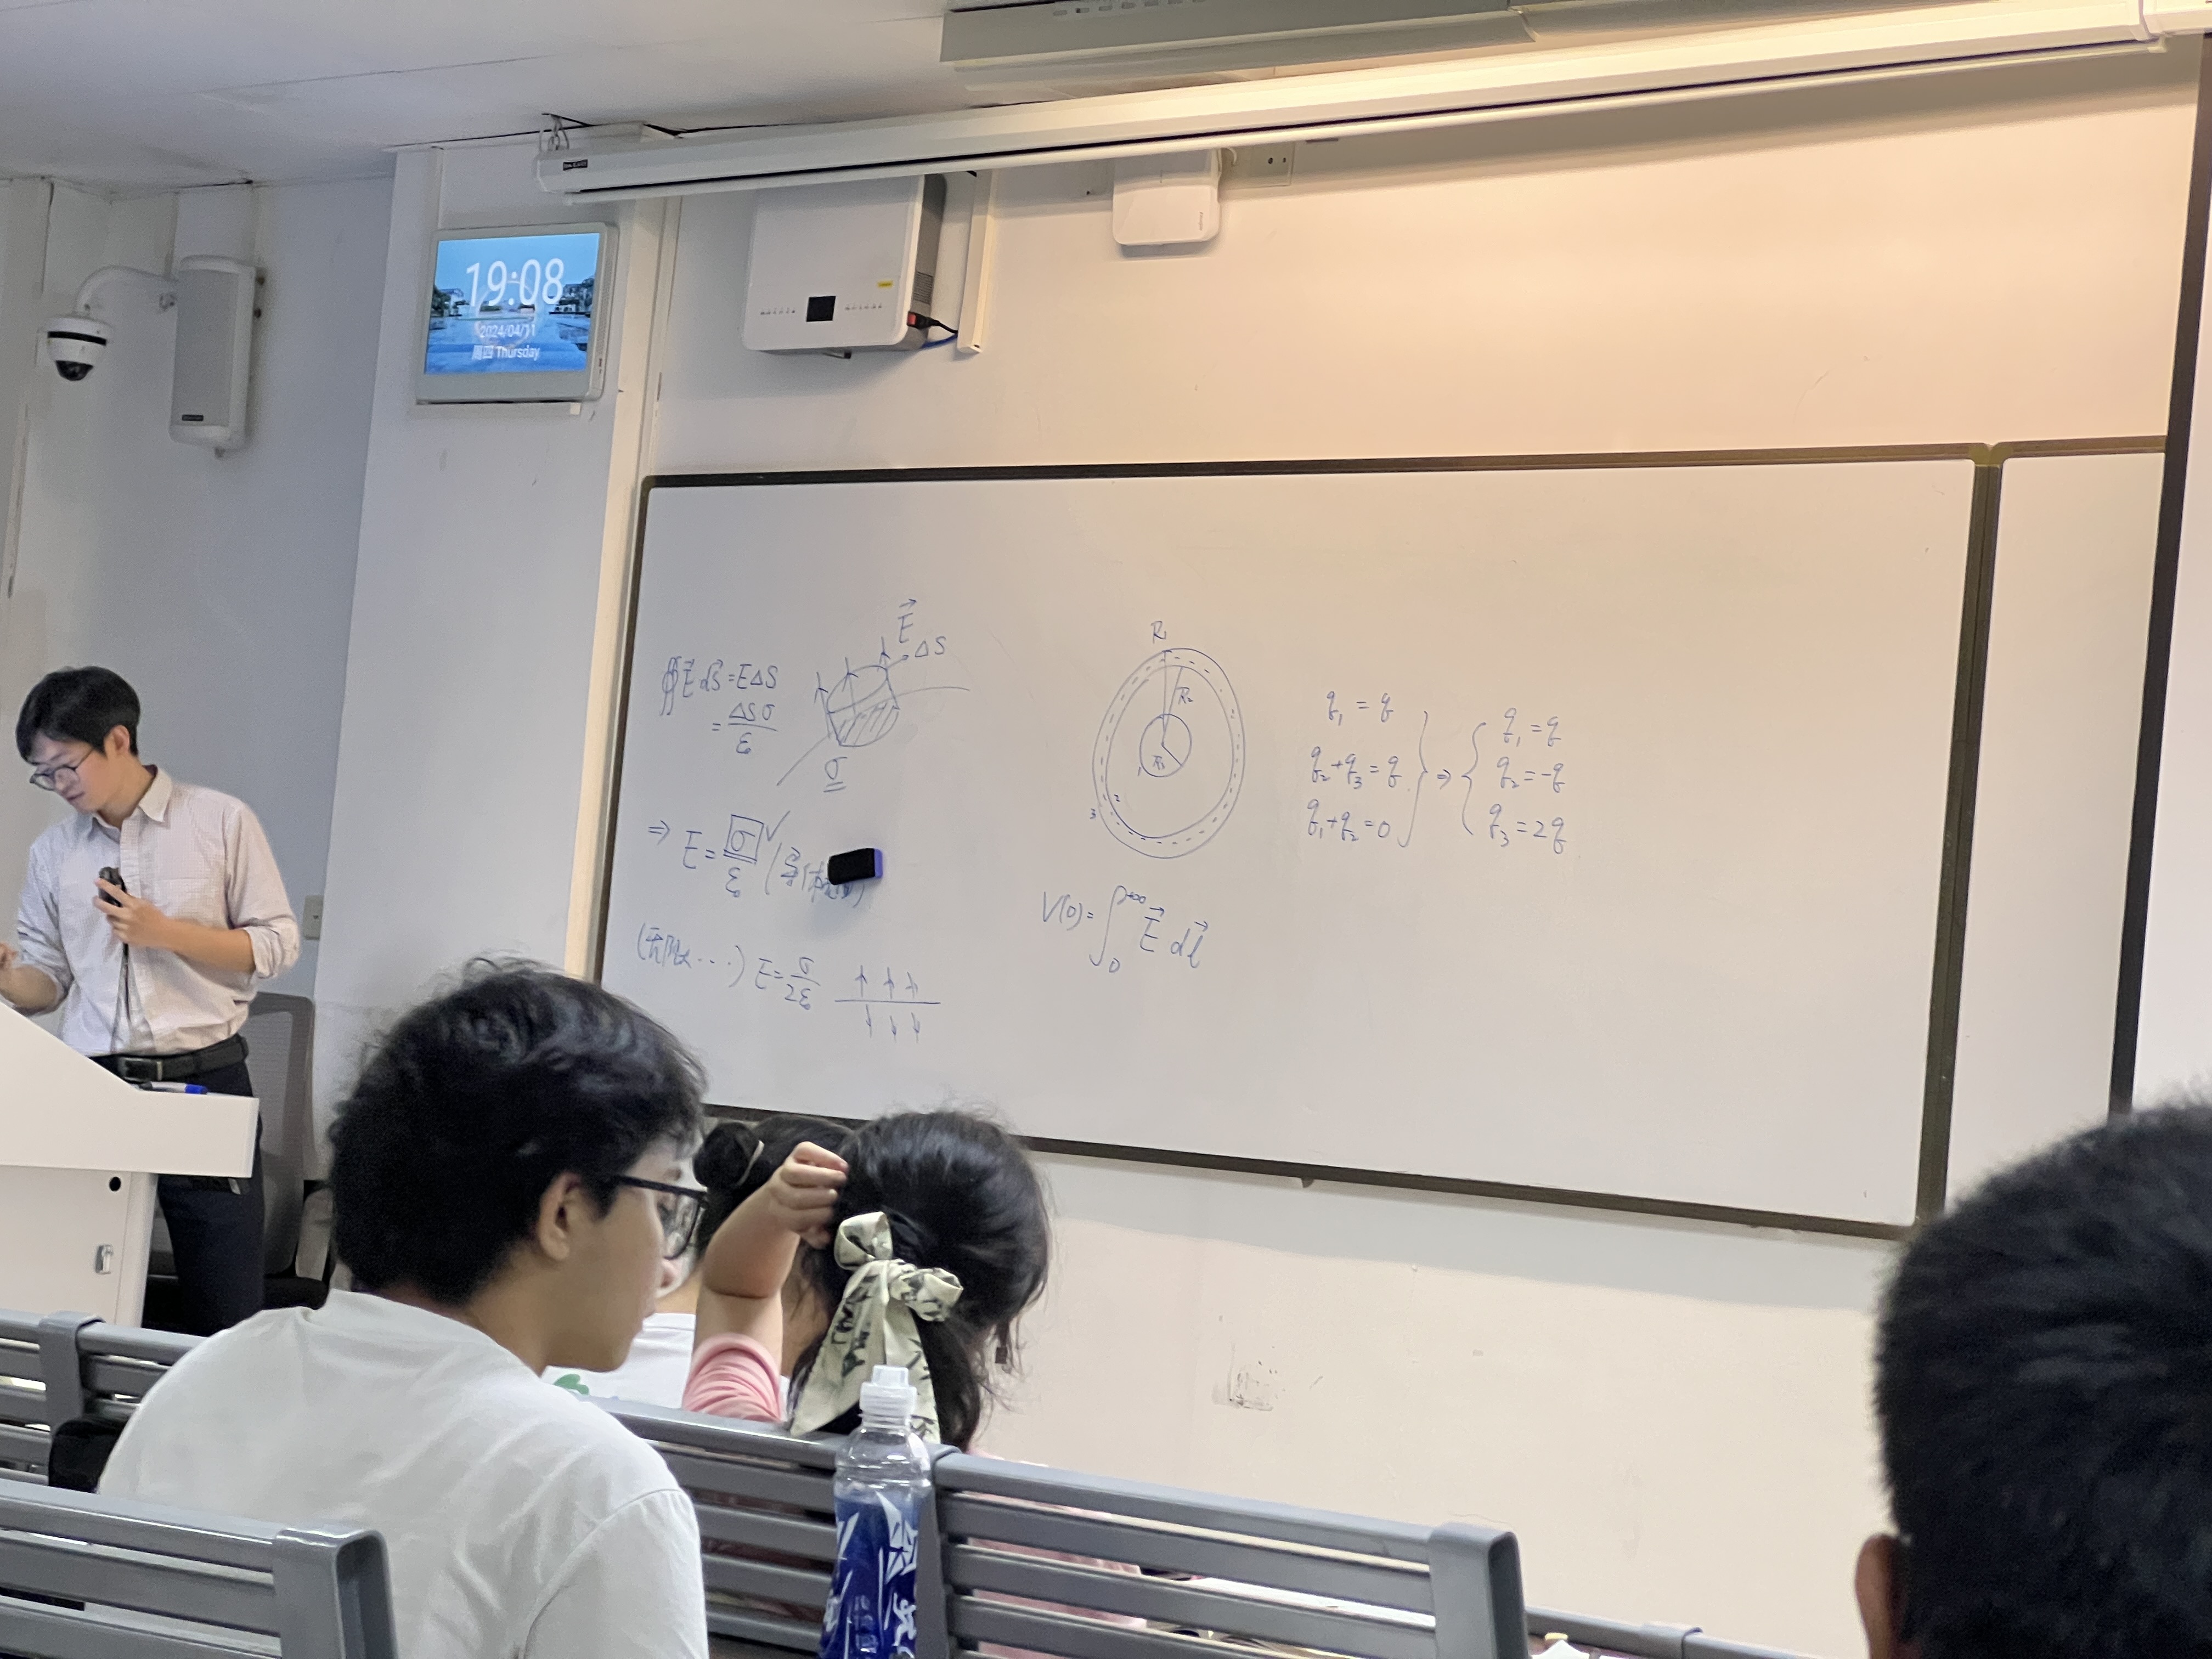 19:08
2024/04/11
周四 Thursday
∯E⃗ dS⃗ = EΔS
= ΔSσ/ε₀
E⃗
ΔS
σ
⇒ E = σ/ε₀ ✓
(无限大...) E = σ/2ε₀
R₂
R₁
1
2
3
V(0) = ∫₀^{+∞} E⃗ dl⃗
q₁ = q
q₂+q₃ = q
q₁+q₂ = 0
⇒
q₁ = q
q₂ = -q
q₃ = 2q